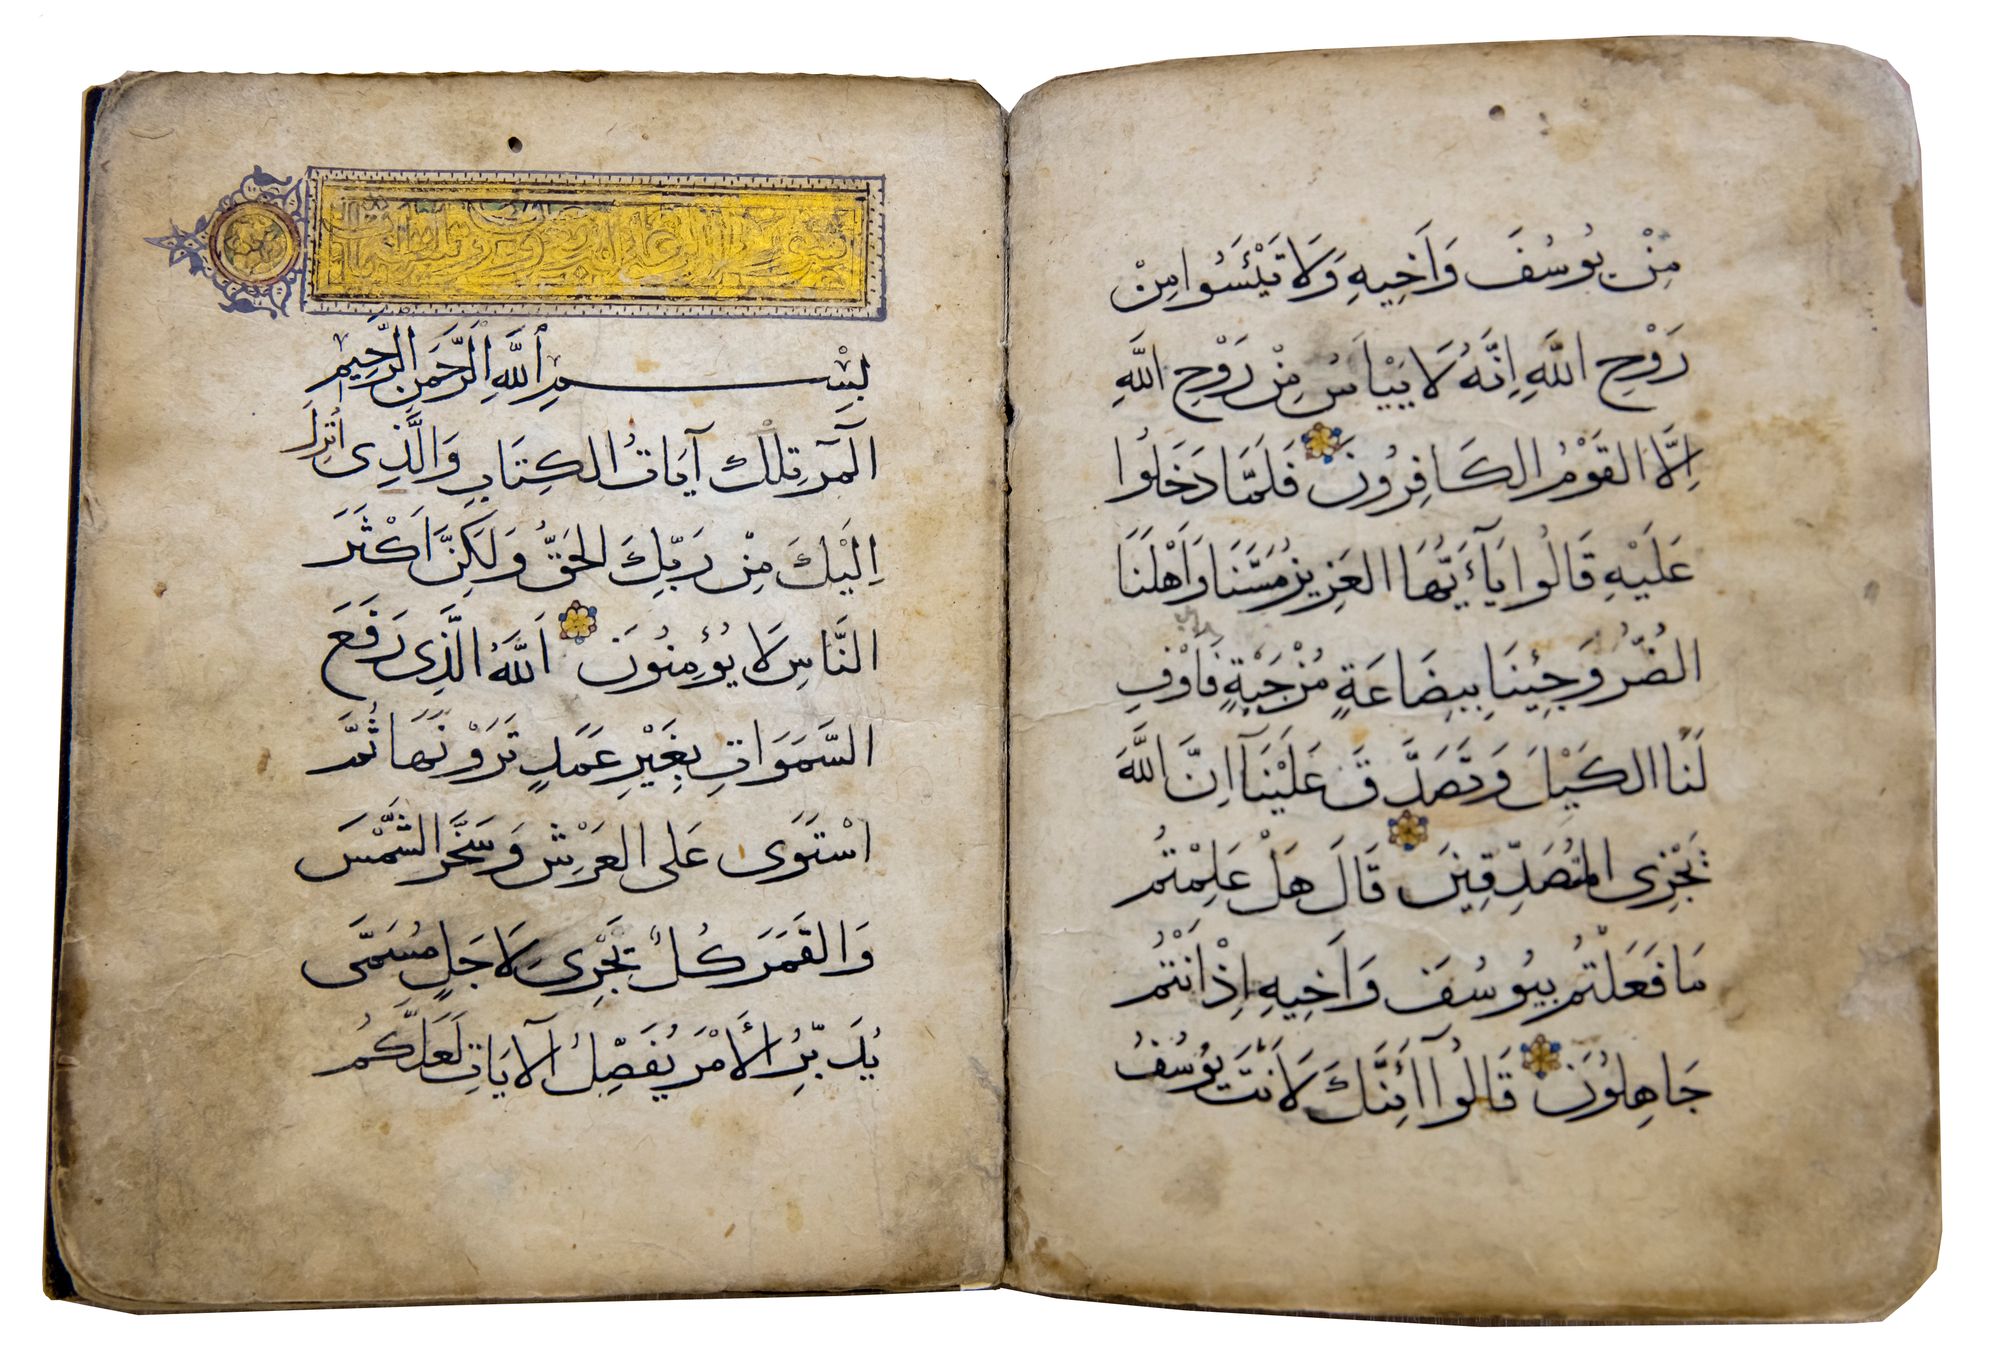 مِنْ يُوسُفَ وَاَخِيهِ وَلَا تَيْئَسُوا مِنْ
رَوْحِ اللَّهِ اِنَّهُ لَا يَيْاَسُ مِنْ رَوْحِ اللَّهِ
اِلَّا القَوْمُ الكَافِرُونَ فَلَمَّا دَخَلُوا
عَلَيْهِ قَالُوا يَآءَيُّهَا العَزِيزُ مَسَّنَا وَاَهْلَنَا
الضُّرُّ وَجِيْنَا بِبِضَاعَةٍ مُزْجَيةٍ فَاَوْفِ
لَنَا الكَيْلَ وَتَصَدَّقَ عَلَيْنَآ اِنَّ اللَّهَ
يَجْزِى المُتَصَدِّقِينَ قَالَ هَلْ عَلِمْتُم
مَا فَعَلْتُم بِيُوسُفَ وَاَخِيهِ اِذْ اَنْتُم
جَاهِلُونَ قَالُوآ اَئِنَّكَ لَاَنْتَ يُوسُفُ
بِسْمِ اللَّهِ الرَّحْمَنِ الرَّحِيمِ
آلَمَر تِلْكَ آيَاتُ الكِتَابِ وَالَّذِى اُنْزِلَ
اِلَيْكَ مِنْ رَبِّكَ الحَقُّ وَلَكِنَّ اَكْثَرَ
النَّاسِ لَا يُؤمِنُونَ اَللَّهُ الَّذِى رَفَعَ
السَّمَوَاتِ بِغَيْرِ عَمَدٍ تَرَوْنَهَا ثُمَّ
اسْتَوَى عَلَى العَرْشِ وَسَخَّرَ الشَّمْسَ
وَالقَمَرَ كُلٌ يَجْرِى لِاَجَلٍ مُسَمَّى
يُدَبِّرُ الأَمْرَ يُفَصِّلُ الآيَاتِ لَعَلَّكُم